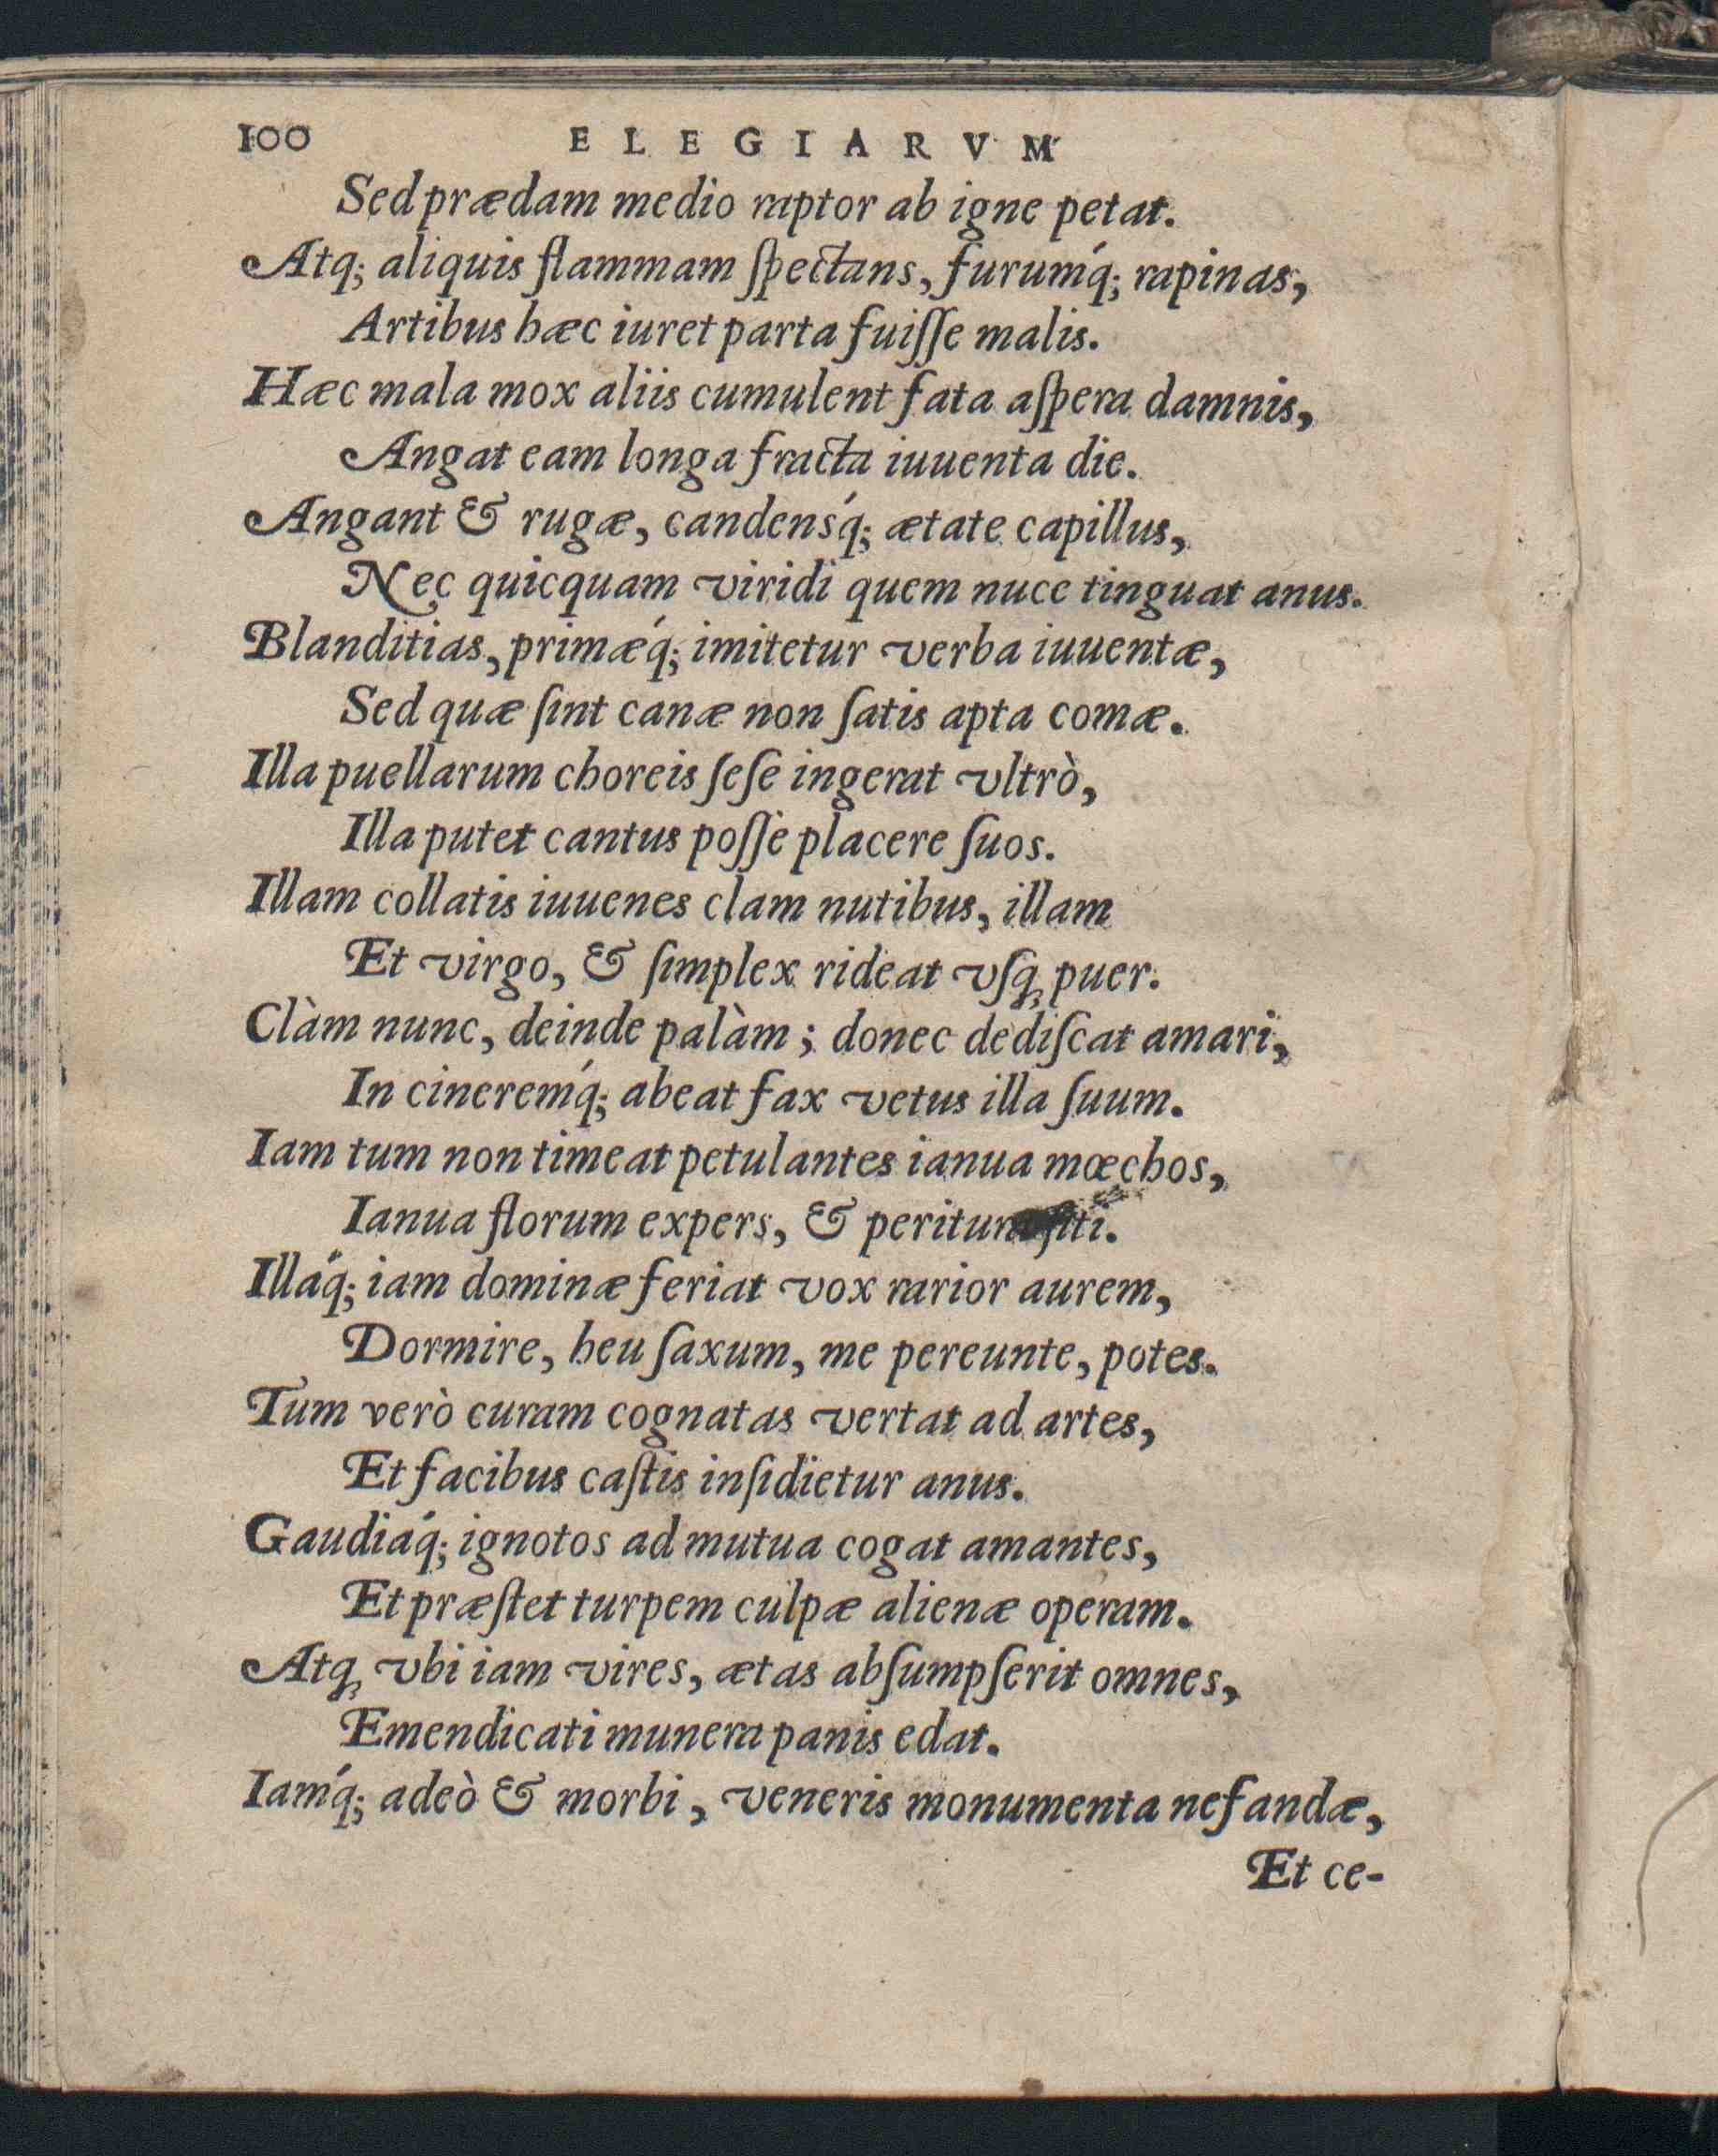 100 ELEGIARVM
Sed prædam medio raptor ab igne petat.
Atq; aliquis flammam ſpectans, furumq́; rapinas,
Artibus hæc iuret parta fuiſſe malis.
Hæc mala mox aliis cumulent fata aſpera damnis,
Angat eam longa fracta iuuenta die.
Angant & rugæ, candensq́; ætate capillus,
Nec quicquam viridi quem nuce tinguat anus.
Blanditias, primæq́; imitetur verba iuuentæ,
Sed quæ ſint canæ non ſatis apta comæ.
Illa puellarum choreis ſeſe ingerat vltrò,
Illa putet cantus poſſe placere ſuos.
Illam collatis iuuenes clam nutibus, illam
Et virgo, & ſimplex rideat vſq; puer.
Clàm nunc, deinde palàm; donec dediſcat amari,
In cineremq́; abeat fax vetus illa ſuum.
Iam tum non timeat petulantes ianua mœchos,
Ianua florum expers, & peritura ſiti.
Illáq; iam dominæ feriat vox rarior aurem,
Dormire, heu ſaxum, me pereunte, potes.
Tum verò curam cognatas vertat ad artes,
Et facibus caſtis inſidietur anus.
Gaudiáq; ignotos ad mutua cogat amantes,
Et præſtet turpem culpæ alienæ operam.
Atq; vbi iam vires, ætas abſumpſerit omnes,
Emendicati munera panis edat.
Iamq́; adeò & morbi, veneris monumenta nefandæ,
Et ce-